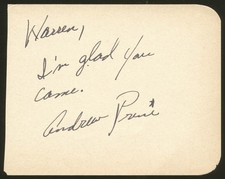 Warren,
I'm glad you
came.
Andrew Prine